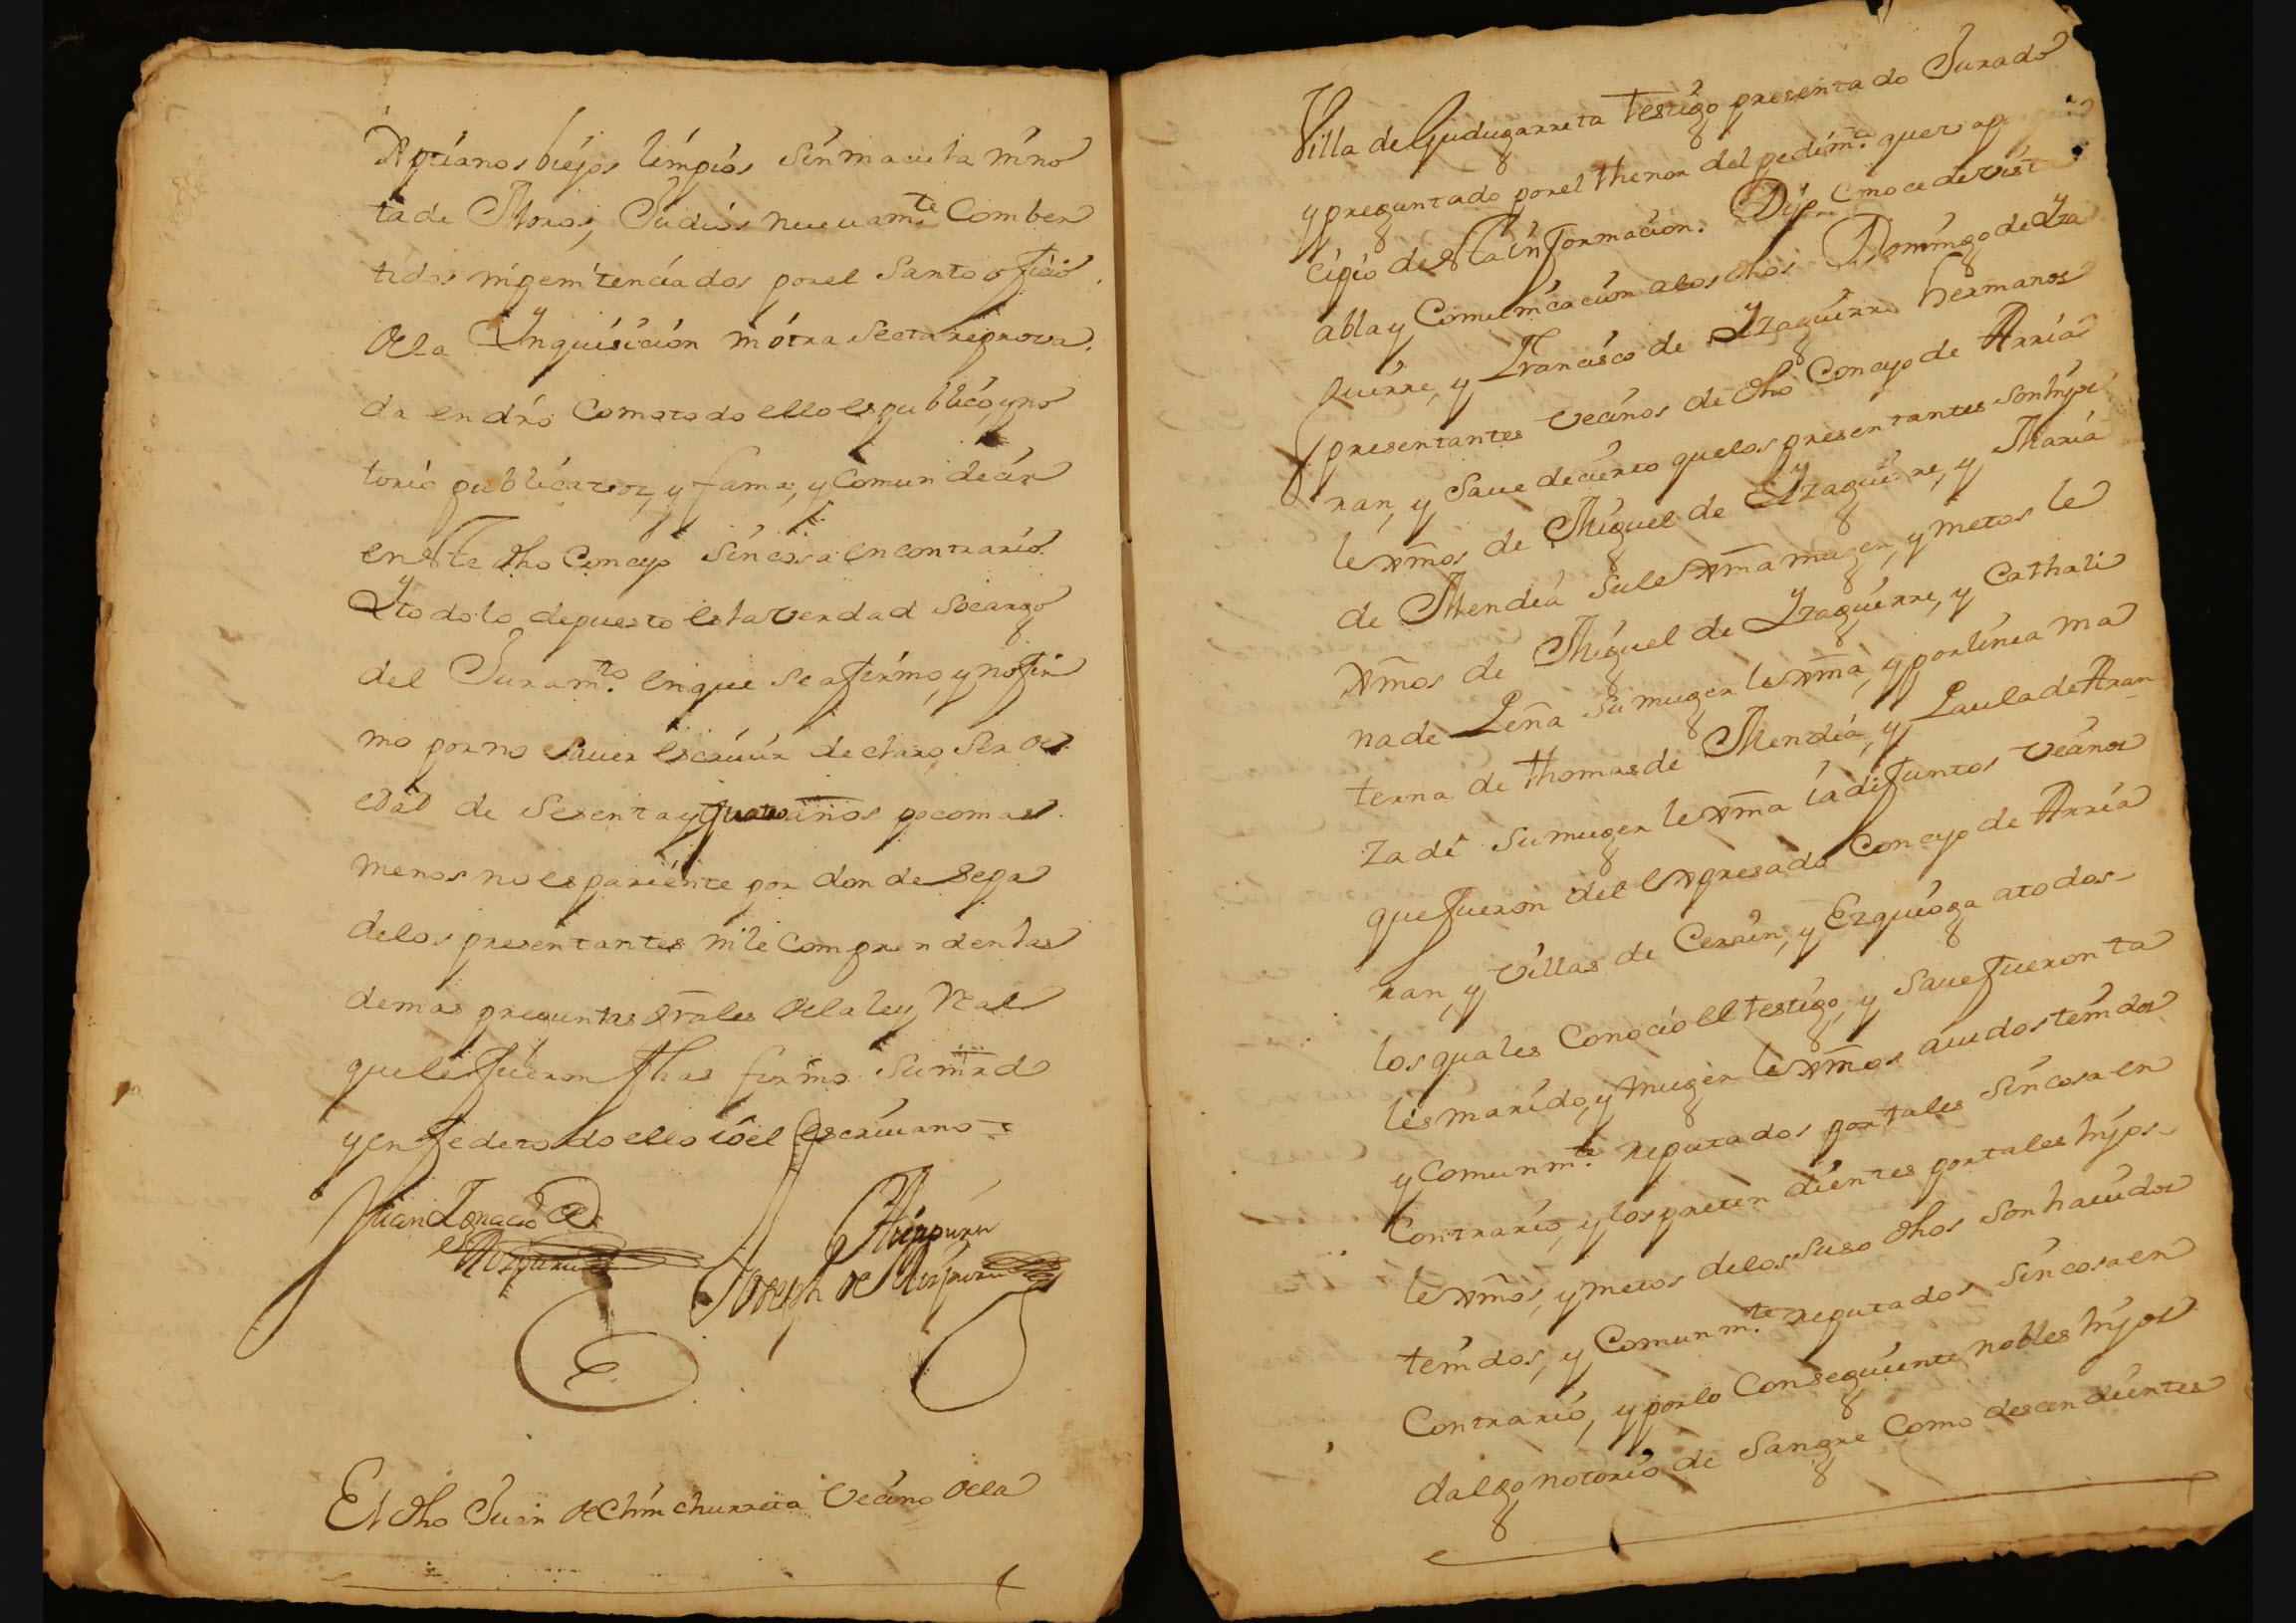 Xptianos biejos limpios sin macula ni no
ta de Moros, Judios nuevamte. Comber
tidos ni penitenciados por el Santo oficio
de la Ynquisicion ni otra secta reprova.
da en dro. Como todo ello es publico, y no
torio publica voz, y fama, y Comun decir
en este dho Concejo sin cosa en contrario.
Y todo lo depuesto es la verdad so cargo
del Juramto. en que se afirmo, y no fir
mo por no saver escrivir declaro, ser de
edad de sesenta y quatro años poco mas
menos no es pariente por donde sepa
de los presentantes ni le comprenden las
demas preguntas grales de la ley Real
que le fueron fhas firmo su mrd
y en fe de todo ello io el escrivano =
Juan Ignacio de
Joseph de
El dho Juan de Chinchurreta vecino de la
Villa de Gudugarreta testigo presentado Jurado
y preguntado por el thenor del pedimto. que va
cipio de esta informacion. Dijo Conoce de vist
abla y Comunicacion a los dhos Domingo de Yza
guirre, y Francisco de Yzaguirre hermanos
presentantes vecinos de dho Concejo de Arria
ran, y save de cierto que los presentantes son hijos
lexmos de Miguel de Yzaguirre, y Maria
de Mendia su lexma muger, y nietos le
xmos de Miguel de Yzaguirre, y Cathali
na de Peña su muger lexma, y por linea ma
terna de thomas de Mendia, y Paula de Aran
zadi su muger lexma ia difuntos vecinos
que fueron del expresado Concejo de Arria
ran, y villas de Cerain, y Ezquioga a todos
los quales Conocio el testigo, y save fueron ta
les marido, y muger lexmos avidos tenidos
y comunmte. reputados por tales sin cosa en
Contrario, y los pretendientes por tales hijos
lexmos, y nietos de los suso dhos son havidos
tenidos, y Comunmte. reputados sin cosa en
Contrario, y por lo Consequiente nobles hijos
dalgo notorio de Sangre Como descendientes